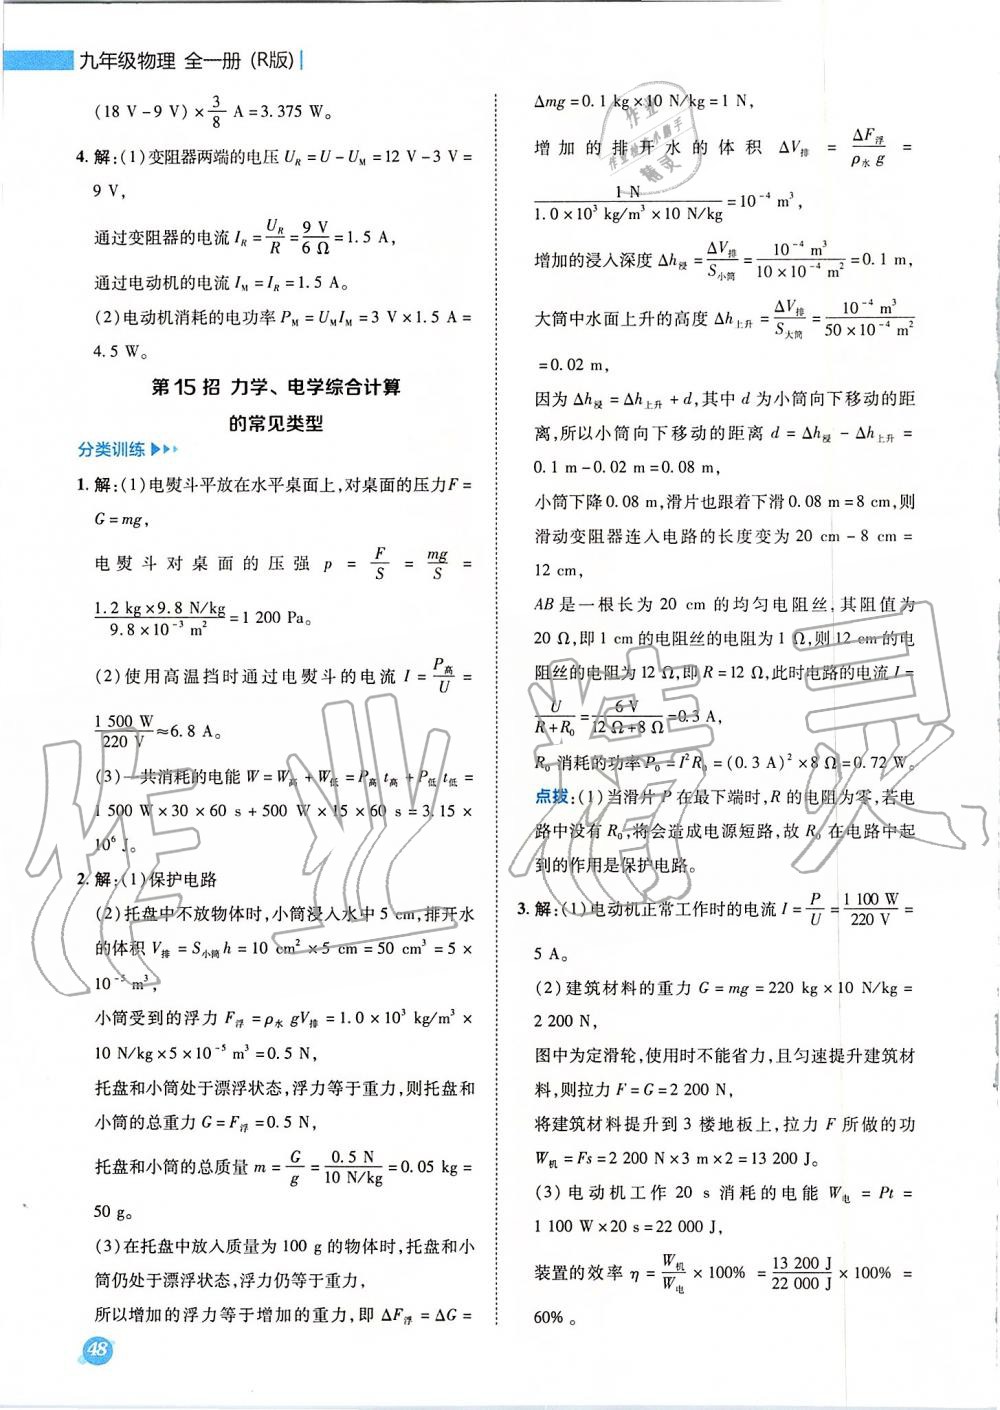 九年级物理 全一册 (R版)
(18 V-9 V)×3/8 A=3.375 W。
4. 解:(1)变阻器两端的电压 U_R=U-U_M=12 V-3 V=
9 V,
通过变阻器的电流 I_R=U_R/R=9 V/6 Ω=1.5 A,
通过电动机的电流 I_M=I_R=1.5 A。
(2)电动机消耗的电功率 P_M=U_M I_M=3 V×1.5 A=
4.5 W。
第 15 招 力学、电学综合计算
的常见类型
分类训练
1. 解:(1)电熨斗平放在水平桌面上,对桌面的压力F=
G=mg,
电熨斗对桌面的压强 p=F/S=mg/S=
1.2 kg×9.8 N/kg/9.8×10⁻³ m²=1 200 Pa。
(2)使用高温挡时通过电熨斗的电流 I=P高/U=
1 500 W/220 V≈6.8 A。
(3)一共消耗的电能 W=W高+W低=P高 t高+P低 t低=
1 500 W×30×60 s+500 W×15×60 s=3.15×
10⁶ J。
2. 解:(1)保护电路
(2)托盘中不放物体时,小筒浸入水中 5 cm,排开水
的体积 V排=S小筒 h=10 cm²×5 cm=50 cm³=5×
10⁻⁵ m³,
小筒受到的浮力 F浮=ρ水 gV排=1.0×10³ kg/m³×
10 N/kg×5×10⁻⁵ m³=0.5 N,
托盘和小筒处于漂浮状态,浮力等于重力,则托盘和
小筒的总重力 G=F浮=0.5 N,
托盘和小筒的总质量 m=G/g=0.5 N/10 N/kg=0.05 kg=
50 g。
(3)在托盘中放入质量为 100 g 的物体时,托盘和小
筒仍处于漂浮状态,浮力仍等于重力,
所以增加的浮力等于增加的重力,即 ΔF浮=ΔG=
48
Δmg=0.1 kg×10 N/kg=1 N,
增加的排开水的体积 ΔV排=ΔF浮/ρ水 g=
1 N/1.0×10³ kg/m³×10 N/kg=10⁻⁴ m³,
增加的浸入深度 Δh浸=ΔV排/S小筒=10⁻⁴ m³/10×10⁻⁴ m²=0.1 m,
大筒中水面上升的高度 Δh上升=ΔV排/S大筒=10⁻⁴ m³/50×10⁻⁴ m²
=0.02 m,
因为 Δh浸=Δh上升+d,其中 d 为小筒向下移动的距
离,所以小筒向下移动的距离 d=Δh浸-Δh上升=
0.1 m-0.02 m=0.08 m,
小筒下降 0.08 m,滑片也跟着下滑 0.08 m=8 cm,则
滑动变阻器连入电路的长度变为 20 cm-8 cm=
12 cm,
AB 是一根长为 20 cm 的均匀电阻丝,其阻值为
20 Ω,即 1 cm 的电阻丝的电阻为 1 Ω,则 12 cm 的电
阻丝的电阻为 12 Ω,即 R=12 Ω,此时电路的电流 I=
U/R+R₀=6 V/12 Ω+8 Ω=0.3 A,
R₀ 消耗的功率 P₀=I²R₀=(0.3 A)²×8 Ω=0.72 W。
点拨:(1)当滑片 P 在最下端时,R 的电阻为零,若电
路中没有 R₀,将会造成电源短路,故 R₀ 在电路中起
到的作用是保护电路。
3. 解:(1)电动机正常工作时的电流 I=P/U=1 100 W/220 V=
5 A。
(2)建筑材料的重力 G=mg=220 kg×10 N/kg=
2 200 N,
图中为定滑轮,使用时不能省力,且匀速提升建筑材
料,则拉力 F=G=2 200 N,
将建筑材料提升到 3 楼地板上,拉力 F 所做的功
W机=Fs=2 200 N×3 m×2=13 200 J。
(3)电动机工作 20 s 消耗的电能 W电=Pt=
1 100 W×20 s=22 000 J,
装置的效率 η=W机/W电×100%=13 200 J/22 000 J×100%=
60%。
作业精灵